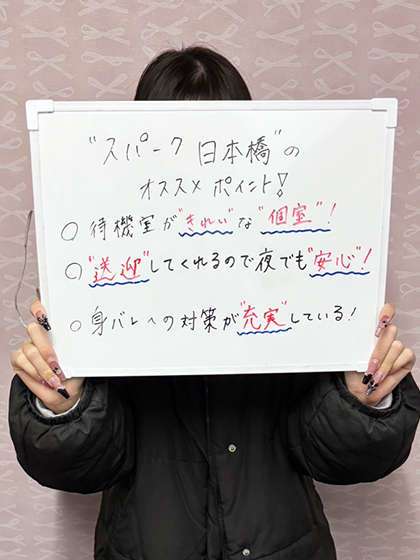 "スパーク 日本橋"の
オススメ ポイント!
○ 待機室が"きれい"な"個室"!
○ "送迎"してくれるので夜でも"安心"!
○ 身バレへの対策が"充実"している!